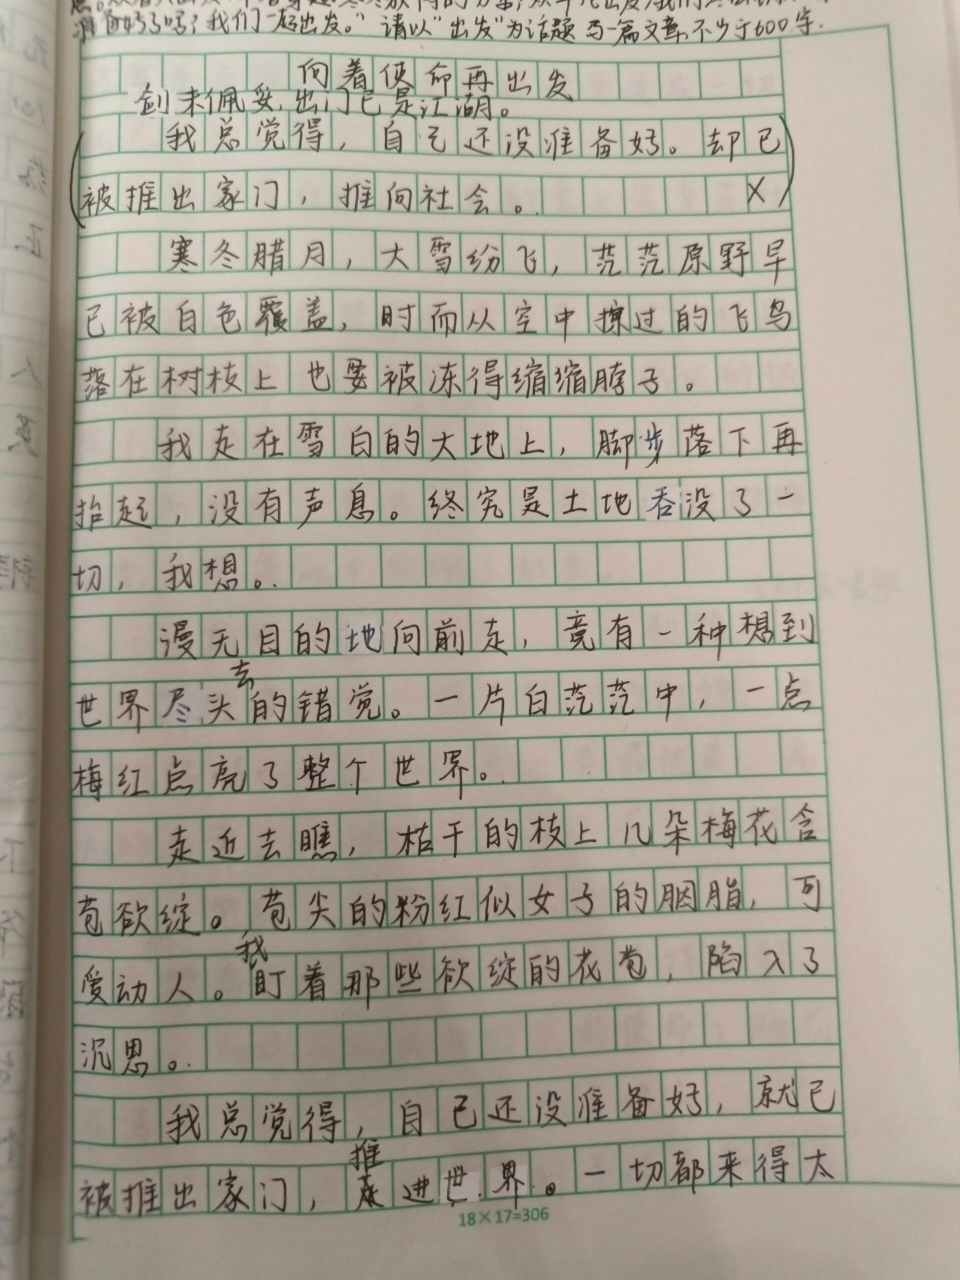 们一起出发。”请以“出发”为话题写一篇文章,不少于600字.
向着使命再出发
剑未佩妥,出门已是江湖。
我总觉得,自己还没准备好。却已
被推出家门,推向社会。
寒冬腊月,大雪纷飞,茫茫原野早
已被白色覆盖,时而从空中掠过的飞鸟
落在树枝上也要被冻得缩缩脖子。
我走在雪白的大地上,脚步落下再
抬起,没有声息。终究是土地吞没了一
切,我想。
漫无目的地向前走,竟有一种想到
世界尽头去的错觉。一片白茫茫中,一点
梅红点亮了整个世界。
走近去瞧,枯干的枝上几朵梅花含
苞欲绽。苞尖的粉红似女子的胭脂,可
爱动人。我盯着那些欲绽的花苞,陷入了
沉思。
我总觉得,自己还没准备好,就已
被推出家门,推进世界。一切都来得太
18×17=306